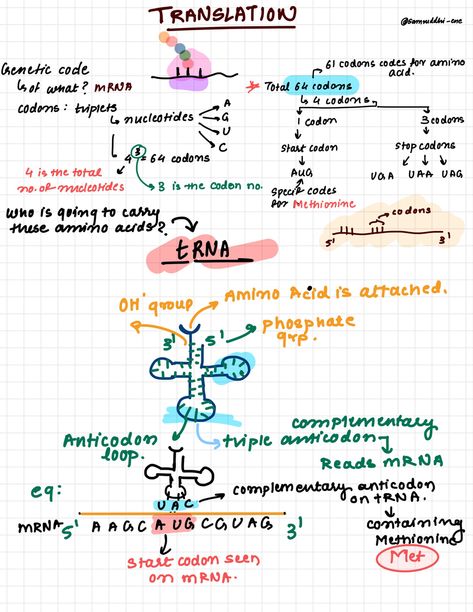 TRANSLATION
@samruddhi-cne
Genetic code
↳ of what? mRNA
codons : triplets
↳ nucleotides
A
G
U
C
4³ = 64 codons
4 is the total
no. of nucleotides
3 is the codon no.
61 codons codes for amino
acid.
* Total 64 codons
↳ 4 codons
1 codon
3 codons
start codon
stop codons
AUG
UGA UAA UAG
specific codes
for Methionine
who is going to carry
these amino acids?
tRNA
codons
5' 3'
OH group
Amino Acid is attached.
3' 5'
phosphate
grp.
Anticodon
loop.
triple anticodon
complementary
Reads mRNA
eq:
UAC
complementary anticodon
on tRNA.
containing
Methionine
Met
mRNA 5' A A G C A U G C G U A G 3'
start codon seen
on mRNA.